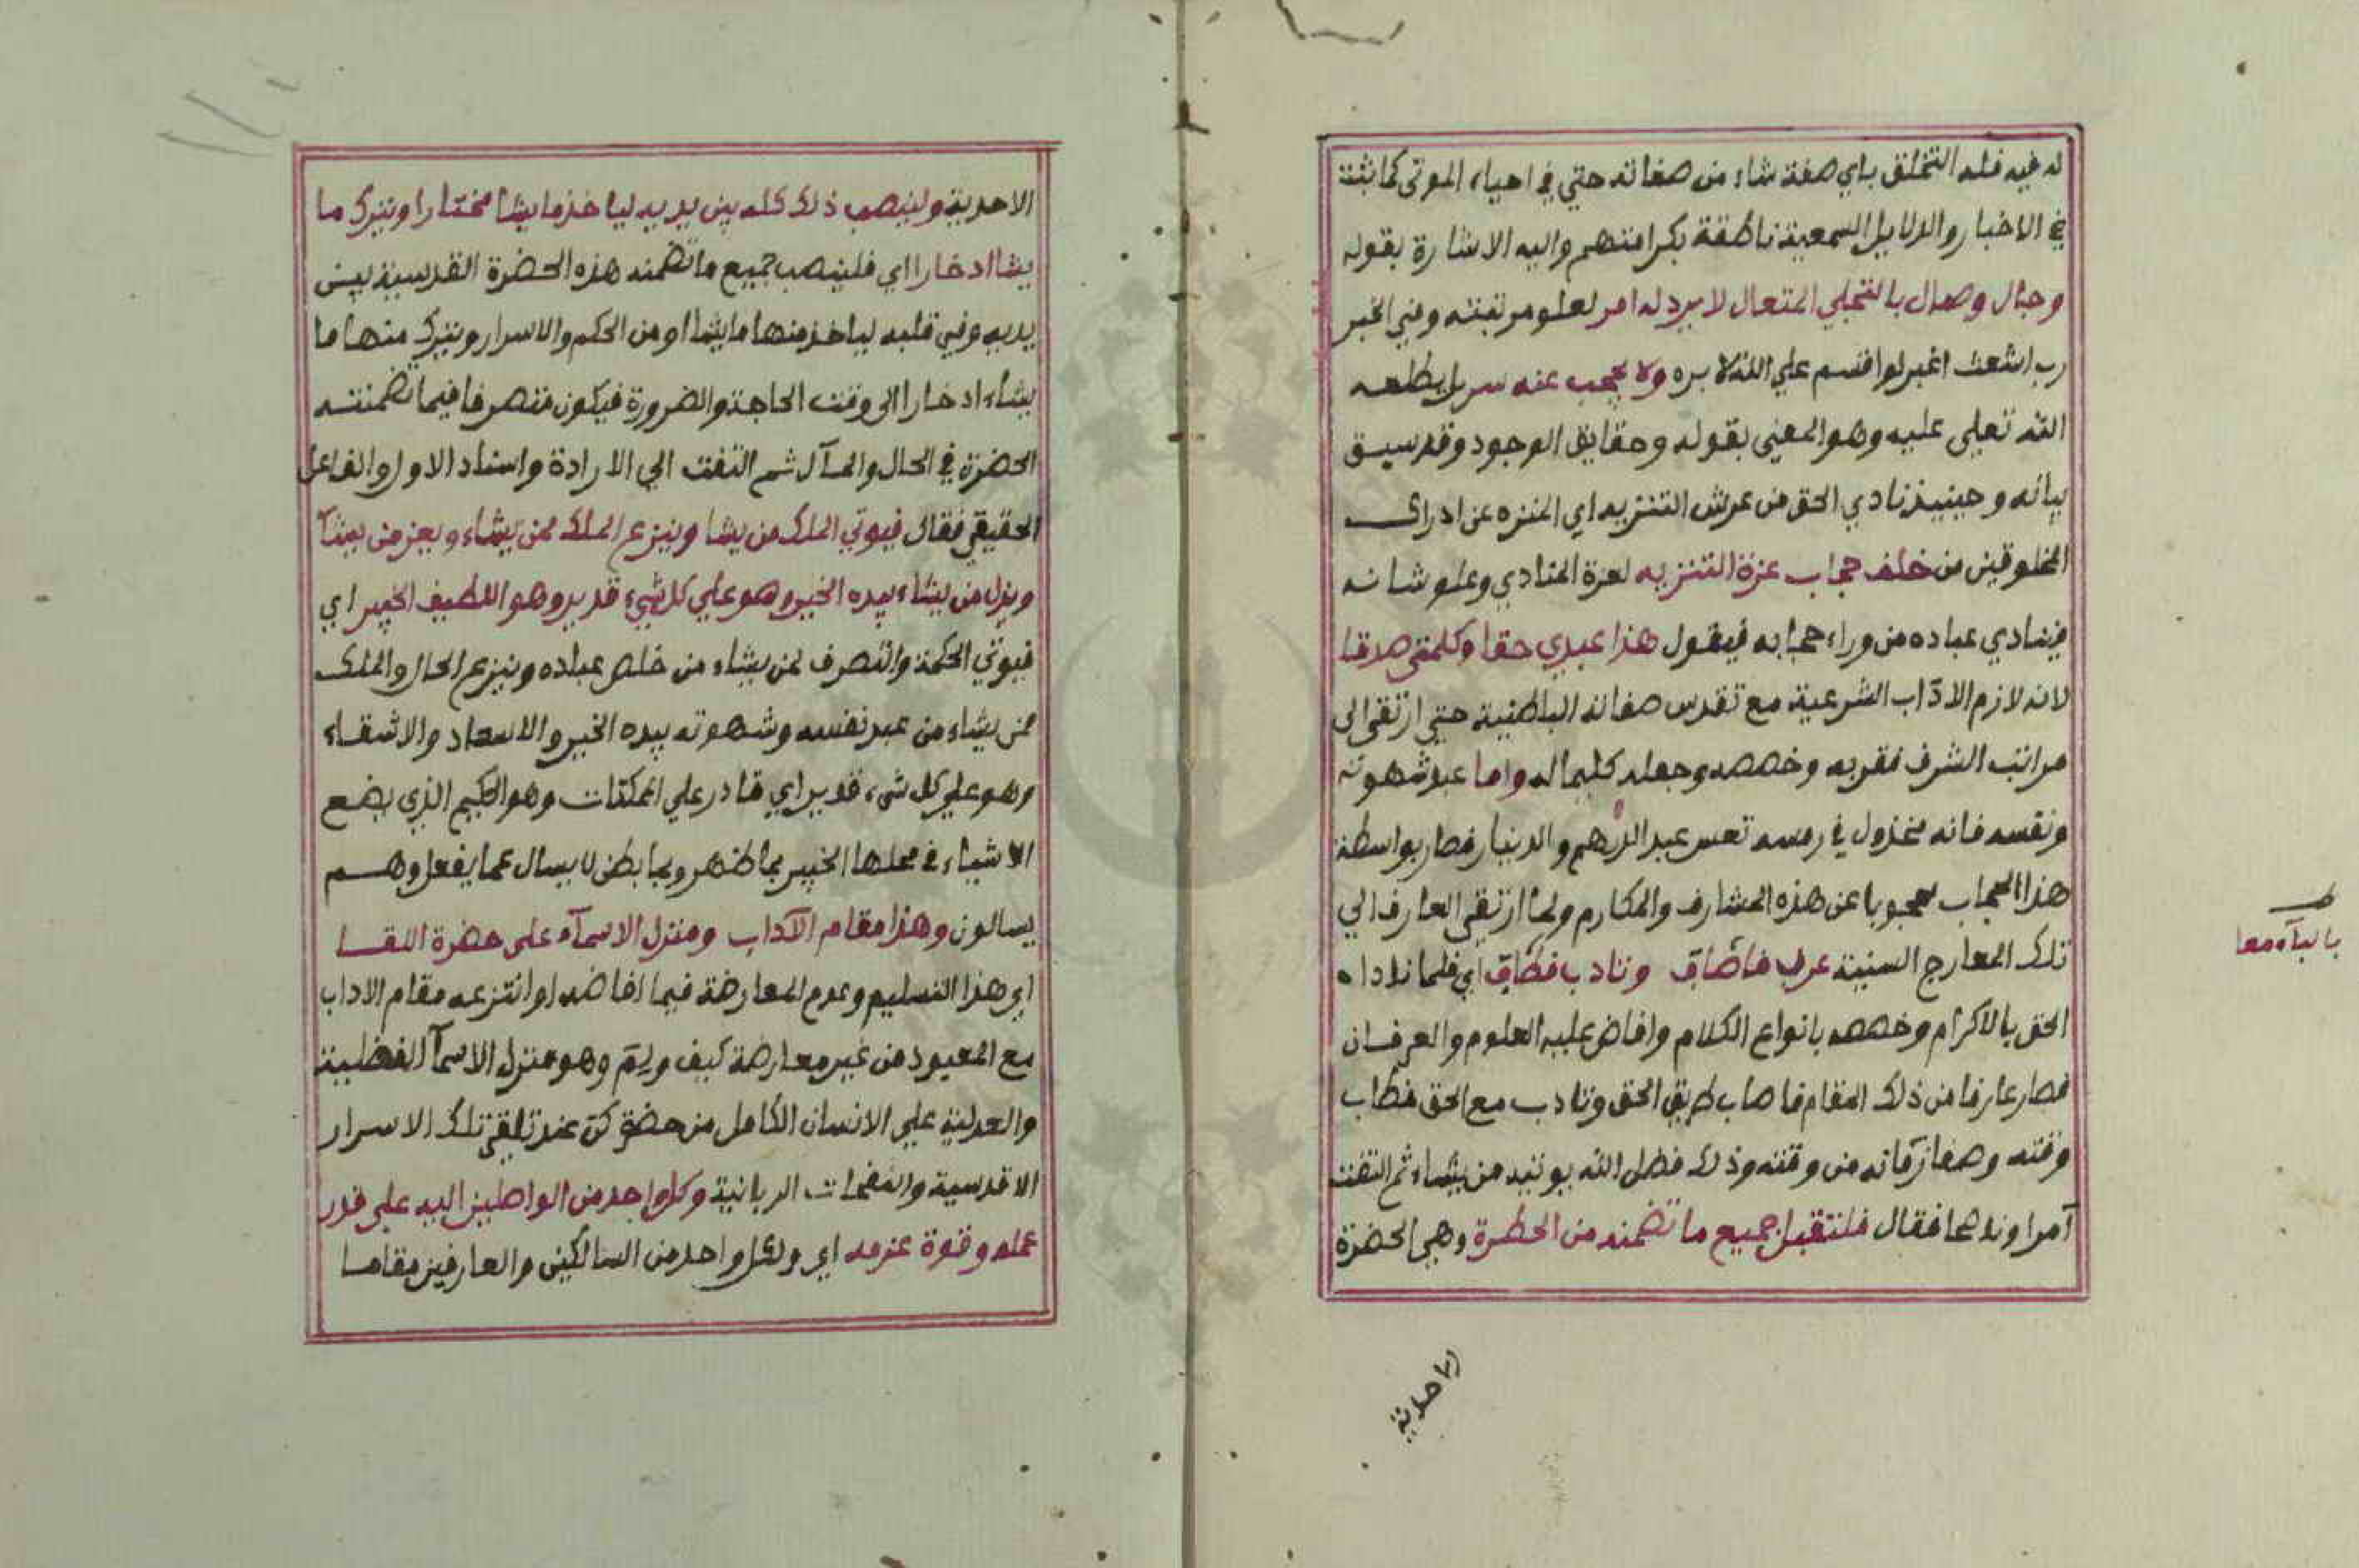 له فيه فله التخلق باي صفة شاء من صفاته حتي في احياء الموتى كما ثبت
في الاخبار والدلايل السمعية ناطقة بكرامتهم واليه الاشارة بقوله
وجال وصال بالتجلي المتعال لا يرد له امر لعلو مرتبته وفي الخبر
رب اشعث اغبر لو اقسم علي الله لابره ولا يحجب عنه سر بل يطلعه
الله تعلى عليه وهو المعني بقوله وحقايق الوجود وقد سبق
بيانه وحينيذ نادي الحق من عرش التنزيه اي المنزه عن ادراك
المخلوقين من خلف حجاب عزة التنزيه لعزة المنادي وعلو شانه
فينادي عباده من وراء حجابه فيقول هذا عبدي حقا وكلمتي صدقا
لانه لازم الاداب الشرعية مع تقدس صفاته الباطنية حتي ارتقى الى
مراتب الشرف فقربه وخصصه وجعله كليما له واما عبد شهوته
ونفسه فانه مخذول في رمسه تعس عبد الدرهم والدينار فصار بواسطة
هذا الحجاب محجوبا عن هذه المشارف والمكارم ولما ارتقى العارف الي
تلك المعارج السنية عرف فاصاب وتادب فطاب اي فلما ناداه
الحق بالاكرام وخصصه بانواع الكلام وافاض عليه العلوم والعرفان
فصار عارفا من ذلك المقام فاصاب طريق الحق وتادب مع الحق فطاب
وقته وصفا زمانه من وقته وذلك فضل الله يوتيه من يشاء ثم التفت
آمرا وناهيا فقال فلتقبل جميع ما تضمنه من الحظرة وهي الحضرة
بالبآء معا
الاحدية
الاحدية ولينصب ذلك كله بين يديه لياخذ ما يشا مختارا ويترك ما
يشا ادخارا اي فلينصب جميع ما تضمنه هذه الحضرة القدسية بين
يديه وفي قلبه لياخذ منها ما يشا او من الحكم والاسرار ويترك منها ما
يشاء ادخارا الى وقت الحاجة والضرورة فيكون متصرفا فيما تضمنته
الحضرة في الحال والمآل ثم التفت الي الارادة واسناد الاول والفاعل
الحقيقي فقال فيوتي الملك من يشا وينزع الملك ممن يشاء ويعز من يشآ
ويذل من يشاء بيده الخير وهو علي كل شيء قدير وهو اللطيف الخبير اي
فيوتي الحكمة والتصرف لمن يشاء من خلص عباده وينزع الحال والملك
ممن يشاء من عبد نفسه وشهوته بيده الخير والاسعاد والاشقاء
وهو علي كل شيء قدير اي قادر علي الممكنات وهو الحكيم الذي يضع
الاشياء في محلها الخبير بما ظهر وبما بطن لا يسال عما يفعل وهم
يسالون وهذا مقام الآداب ومنزل الاسمآء على حضرة اللقا
اي هذا التسليم وعدم المعارضة فيما افاضه او انتزعه مقام الاداب
مع المعبود من غير معارضة كيف ولِمَ وهو منزل الاسمآ الفضلية
والعدلية علي الانسان الكامل من حضرة كن عند تلقي تلك الاسرار
الاقدسية والنفحات الربانية وكل واحد من الواصلين اليه علي قدر
عمله وقوة عزمه اي ولكل واحد من السالكين والعارفين مقاما